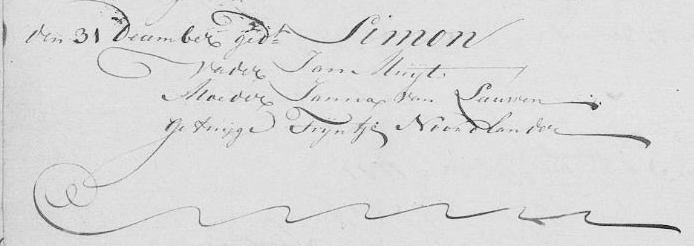 den 31 December ged:t Simon
vader Jan Kuijt
Moeder Janna van Leuwen
getuijge Tryntje Noordlander